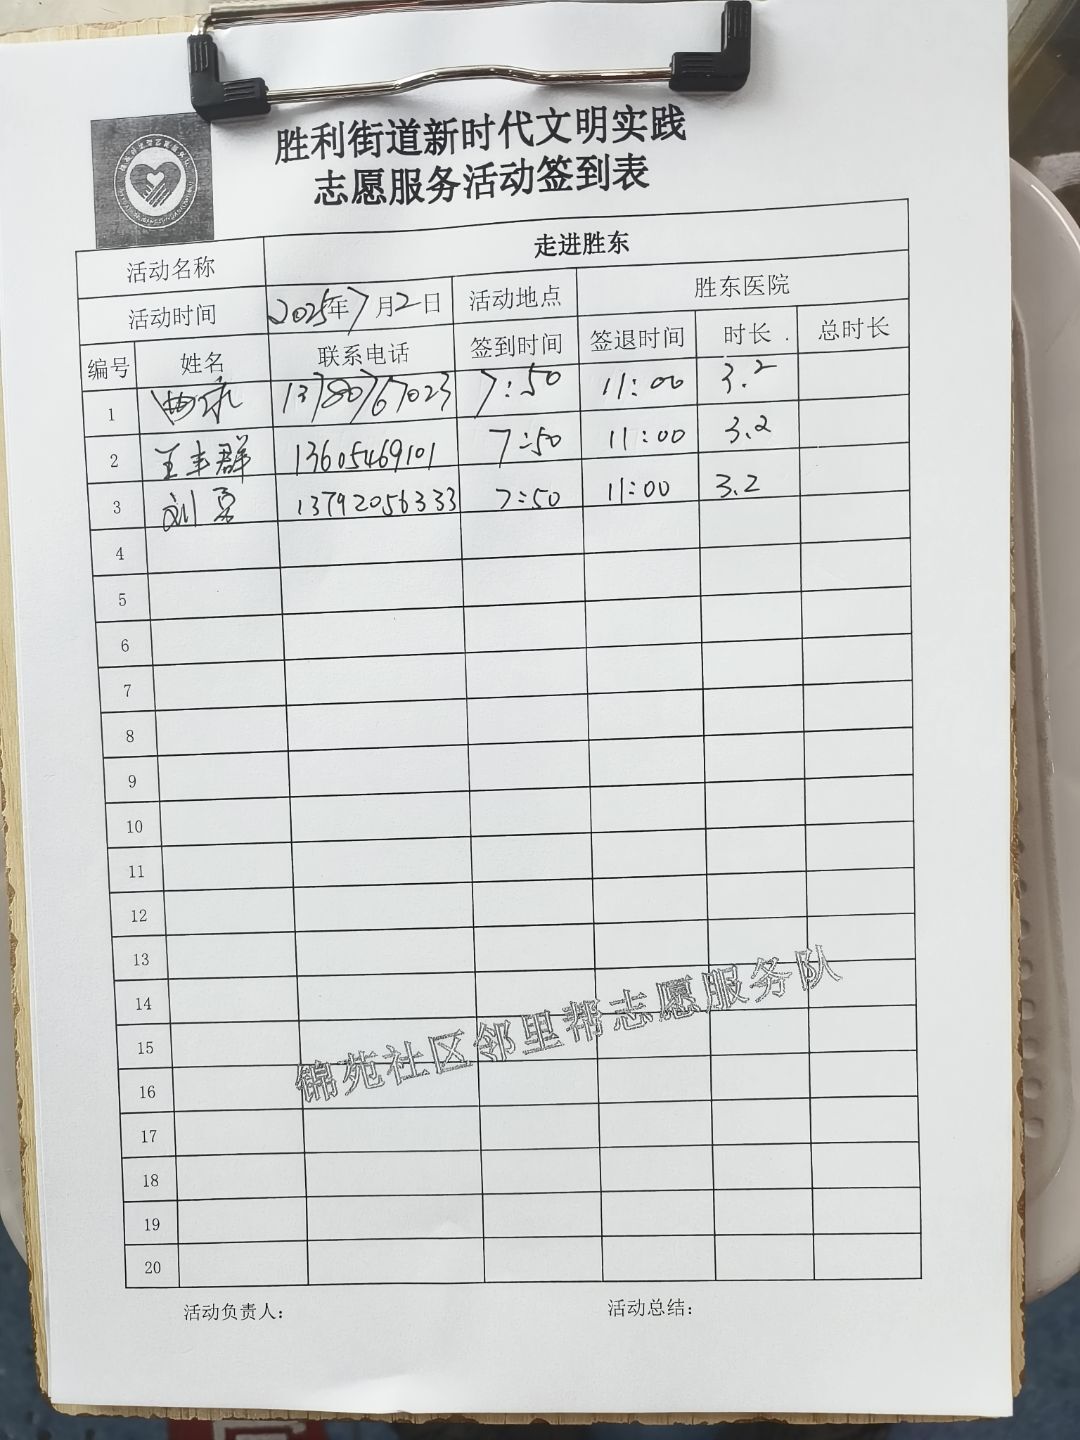 胜利街道新时代文明实践
志愿服务活动签到表
活动名称 走进胜东
活动时间 2025年7月2日 活动地点 胜东医院
编号 姓名 联系电话 签到时间 签退时间 时长 总时长
1 13780767023 7:50 11:00 3.2
2 王丰群 13605469101 7:50 11:00 3.2
3 刘勇 13792056333 7:50 11:00 3.2
4
5
6
7
8
9
10
11
12
13
14
15
16
17
18
19
20
锦苑社区邻里帮志愿服务队
活动负责人: 活动总结: